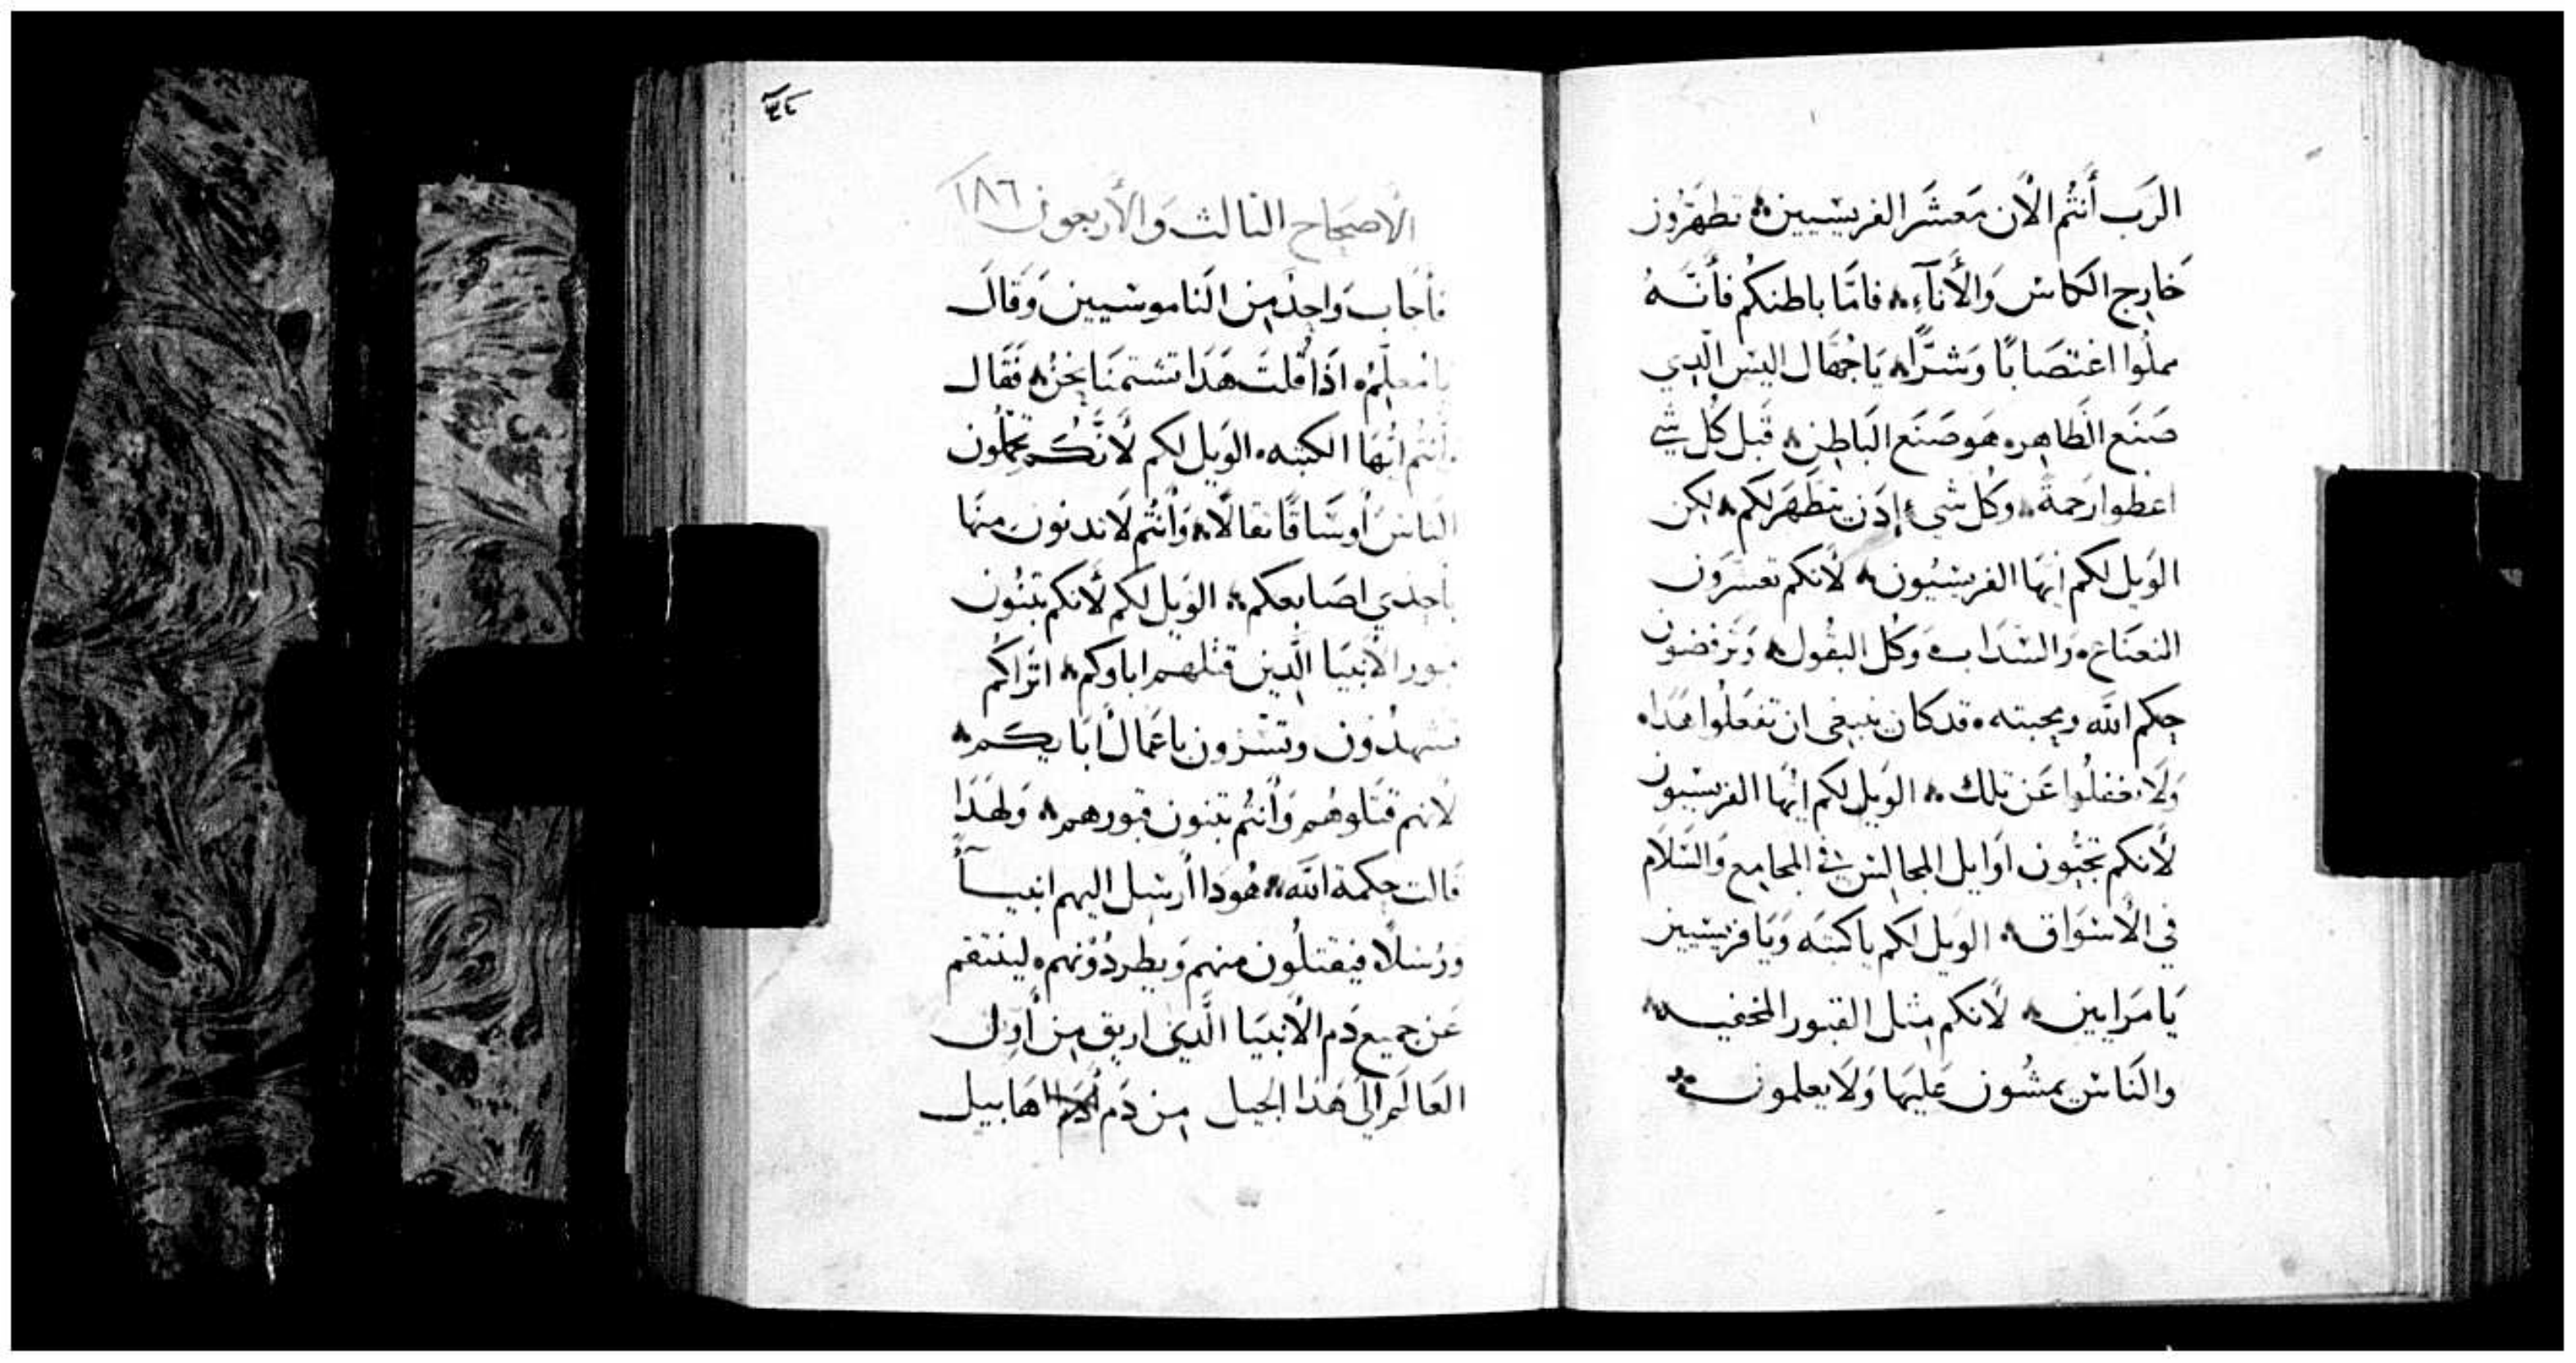 الرَب أَنتُم الأن مَعشَر الفريسيين تطهَرُون
خَارِج الكاس وَالأنآءِ فامَّا باطنكُم فأنَّهُ
مملوا اغتصَابًا وَشرًّا يَا جُهَّال اليس الّدِي
صَنَع الظَاهِر هَو صَنَع البَاطِن قَبل كُل شي
اعطوا رَحمةً وكُل شي إذن يتطَهَر لكم لكن
الوَيل لكم ايُهَا الفريسيُون لأنكم تعشرَون
النعنَاع وَالسَدَاب وَكُل البقُول وَترفضون
حكم الله ومحبته قد كان ينبغى ان تفعَلُوا هَدا
وَلَا تغفلُوا عَن تلك الوَيل لكم ايُهَا الفريسيون
لأنكم تحبُون اَوَايل المجَالِس في المجَامِع وَالسَلَام
في الأسوَاق الويل لكم ياكتبَه وَيَا فريسيين
يَا مرَايين لأنكم مِثل القبور المخفيه
والنَاس يمشُون عَليهَا وَلَا يعلمون
الأصحَاح الثالث وَالأربعون ١٨٦
فأجَاب وَاحِدٌ مِن الناموسيين وَقالَ
يا مُعلّم اذَا قُلتَ هَدَا تشتمنَا نحنُ فَقَال
وأنتُم ايُهَا الكتبه الوَيل لكم لأنَّكُم تحمّلُون
الناسَ أوسَاقًا ثقالًا وَأنتُم لَا تدنون منهَا
باحِدي اصَابعكم الوَيل لكم لأنكم تبنُون
قبور الأنبيَا الّدِين قتلهم اباوكم اترَاكم
تشهدُون وتسُرون باعمَال ابَايكم
لأنهم قتَلوهُم وَأنتُم تبنون قبورهم وَلهَدَا
قالت حِكمة الله هُودا أرسِل اليهم انبيآً
ورُسُلًا فيقتلُون منهم وَيطردُونهم لينتقم
عَن جميع دَم الأنبيَا الَّدِي اريق مِن أول
العَالَم الَى هَذا الجيل مِن دَم هَابيل